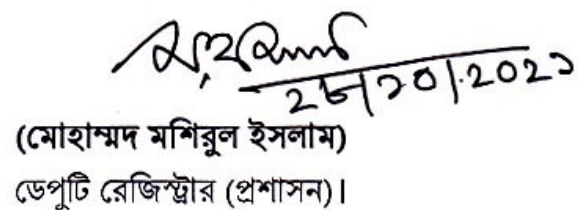 ২৮/১০/২০২১
(মোহাম্মদ মশিরুল ইসলাম)
ডেপুটি রেজিস্ট্রার (প্রশাসন)।